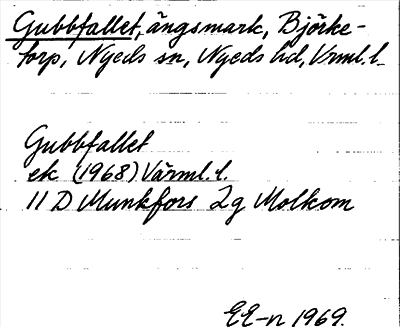 Gubbfallet, ängsmark, Björke-
torp, Nyeds sn, Nyeds hd, Vrml. l.
Gubbfallet
ek. (1968) Värml. l.
11 D Munkfors 2g Molkom
EE-n 1969.